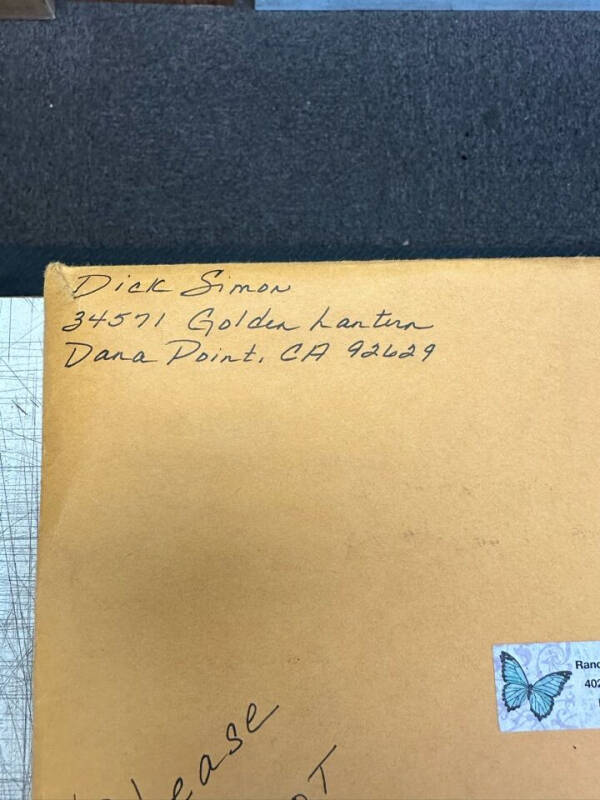 Dick Simon
34571 Golden Lantern
Dana Point, CA 92629
Ranc
402
Please